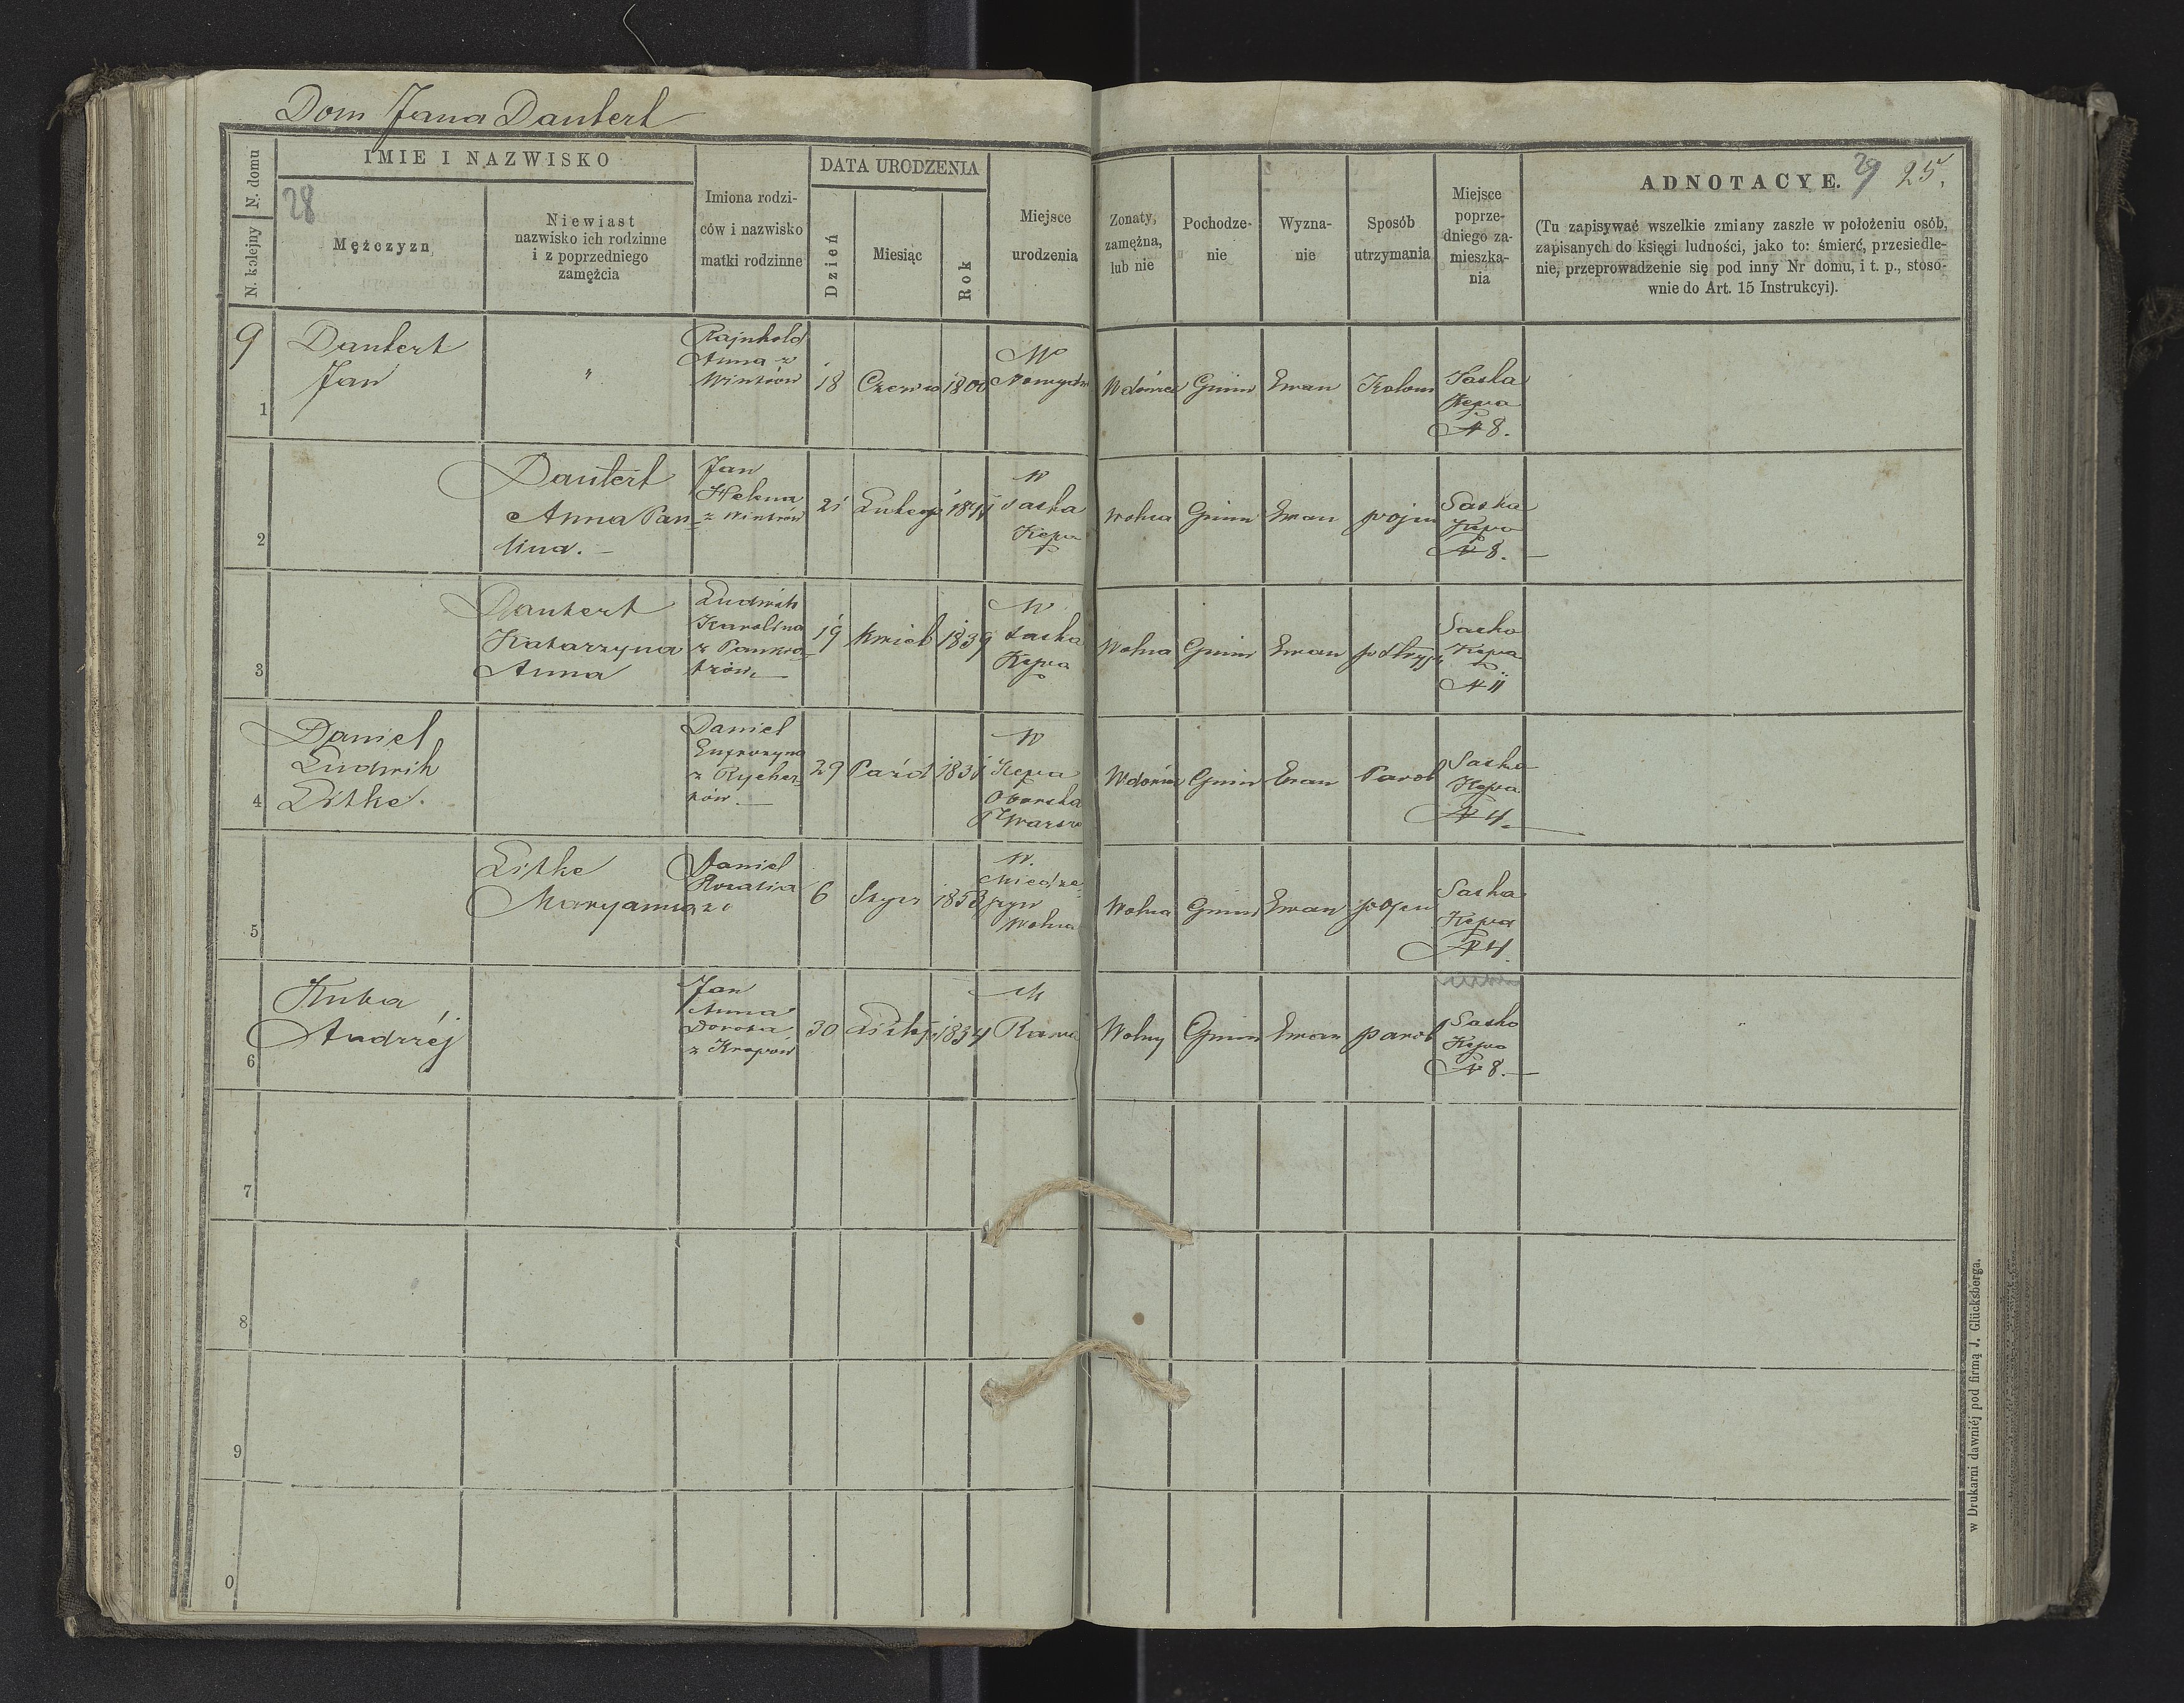 Dom Jana Dautert
N. domu
N. kolejny
IMIE I NAZWISKO
28
Mężczyzn
Niewiast
nazwisko ich rodzinne
i z poprzedniego
zamężcia
Imiona rodzi-
ców i nazwisko
matki rodzinne
DATA URODZENIA
Dzień
Miesiąc
Rok
Miejsce
urodzenia
Zonaty,
zamężna,
lub nie
Pochodze-
nie
Wyzna-
nie
Sposób
utrzymania
Miejsce
poprze-
dniego za-
mieszka-
nia
ADNOTACYE.
29 25.
(Tu zapisywać wszelkie zmiany zaszłe w położeniu osób,
zapisanych do księgi ludności, jako to: śmierć, przesiedle-
nie, przeprowadzenie się pod inny Nr domu, i t. p., stoso-
wnie do Art. 15 Instrukcyi).
9
1
Dautert
Jan
"
Rajnhold
Anna z
Wintrów
18
Czerw
1800
Wdowiec
Gmin
Ewan
Kolon
Saska
Kępa
N 8.
2
Dautert
Anna Pau-
lina.
Jan
Helena
z Wintrów
21
Lutego
W
Saska
Kępa
Wolna
Gmin
Ewan
przoju
Saska
Kępa
N 8.
3
Dautert
Katarzyna
Anna
Ludwik
Karolina
z Pankra-
tzów.
19
Kwiet
1839
W
Saska
Kępa
Wolna
Gmin
Ewan
Saska
Kępa
N 11
4
Daniel
Ludwik
Litke.
Daniel
Eufrozyna
z Rycher-
tów.
29
Paźdz
W
Kępa
Oborska
P Warsz
Wdowiec
Gmin
Ewan
Parob
Saska
Kępa
N 4.
5
Litke
Maryanna
Daniel
Rozalia
z
6
Stycz
1853
W.
Miedze-
szyn
Wolna
Wolna
Gmin
Ewan
Saska
Kępa
N 4.
6
Kuba
Andrzéj
Jan
Anna
Dorota
z Kropów
30
Listop
1834
W
Rawa
Wolny
Gmin
Ewan
parob
Saska
Kępa
N 8.
7
8
9
0
w Drukarni dawniéj pod firmą J. Glücksberga.